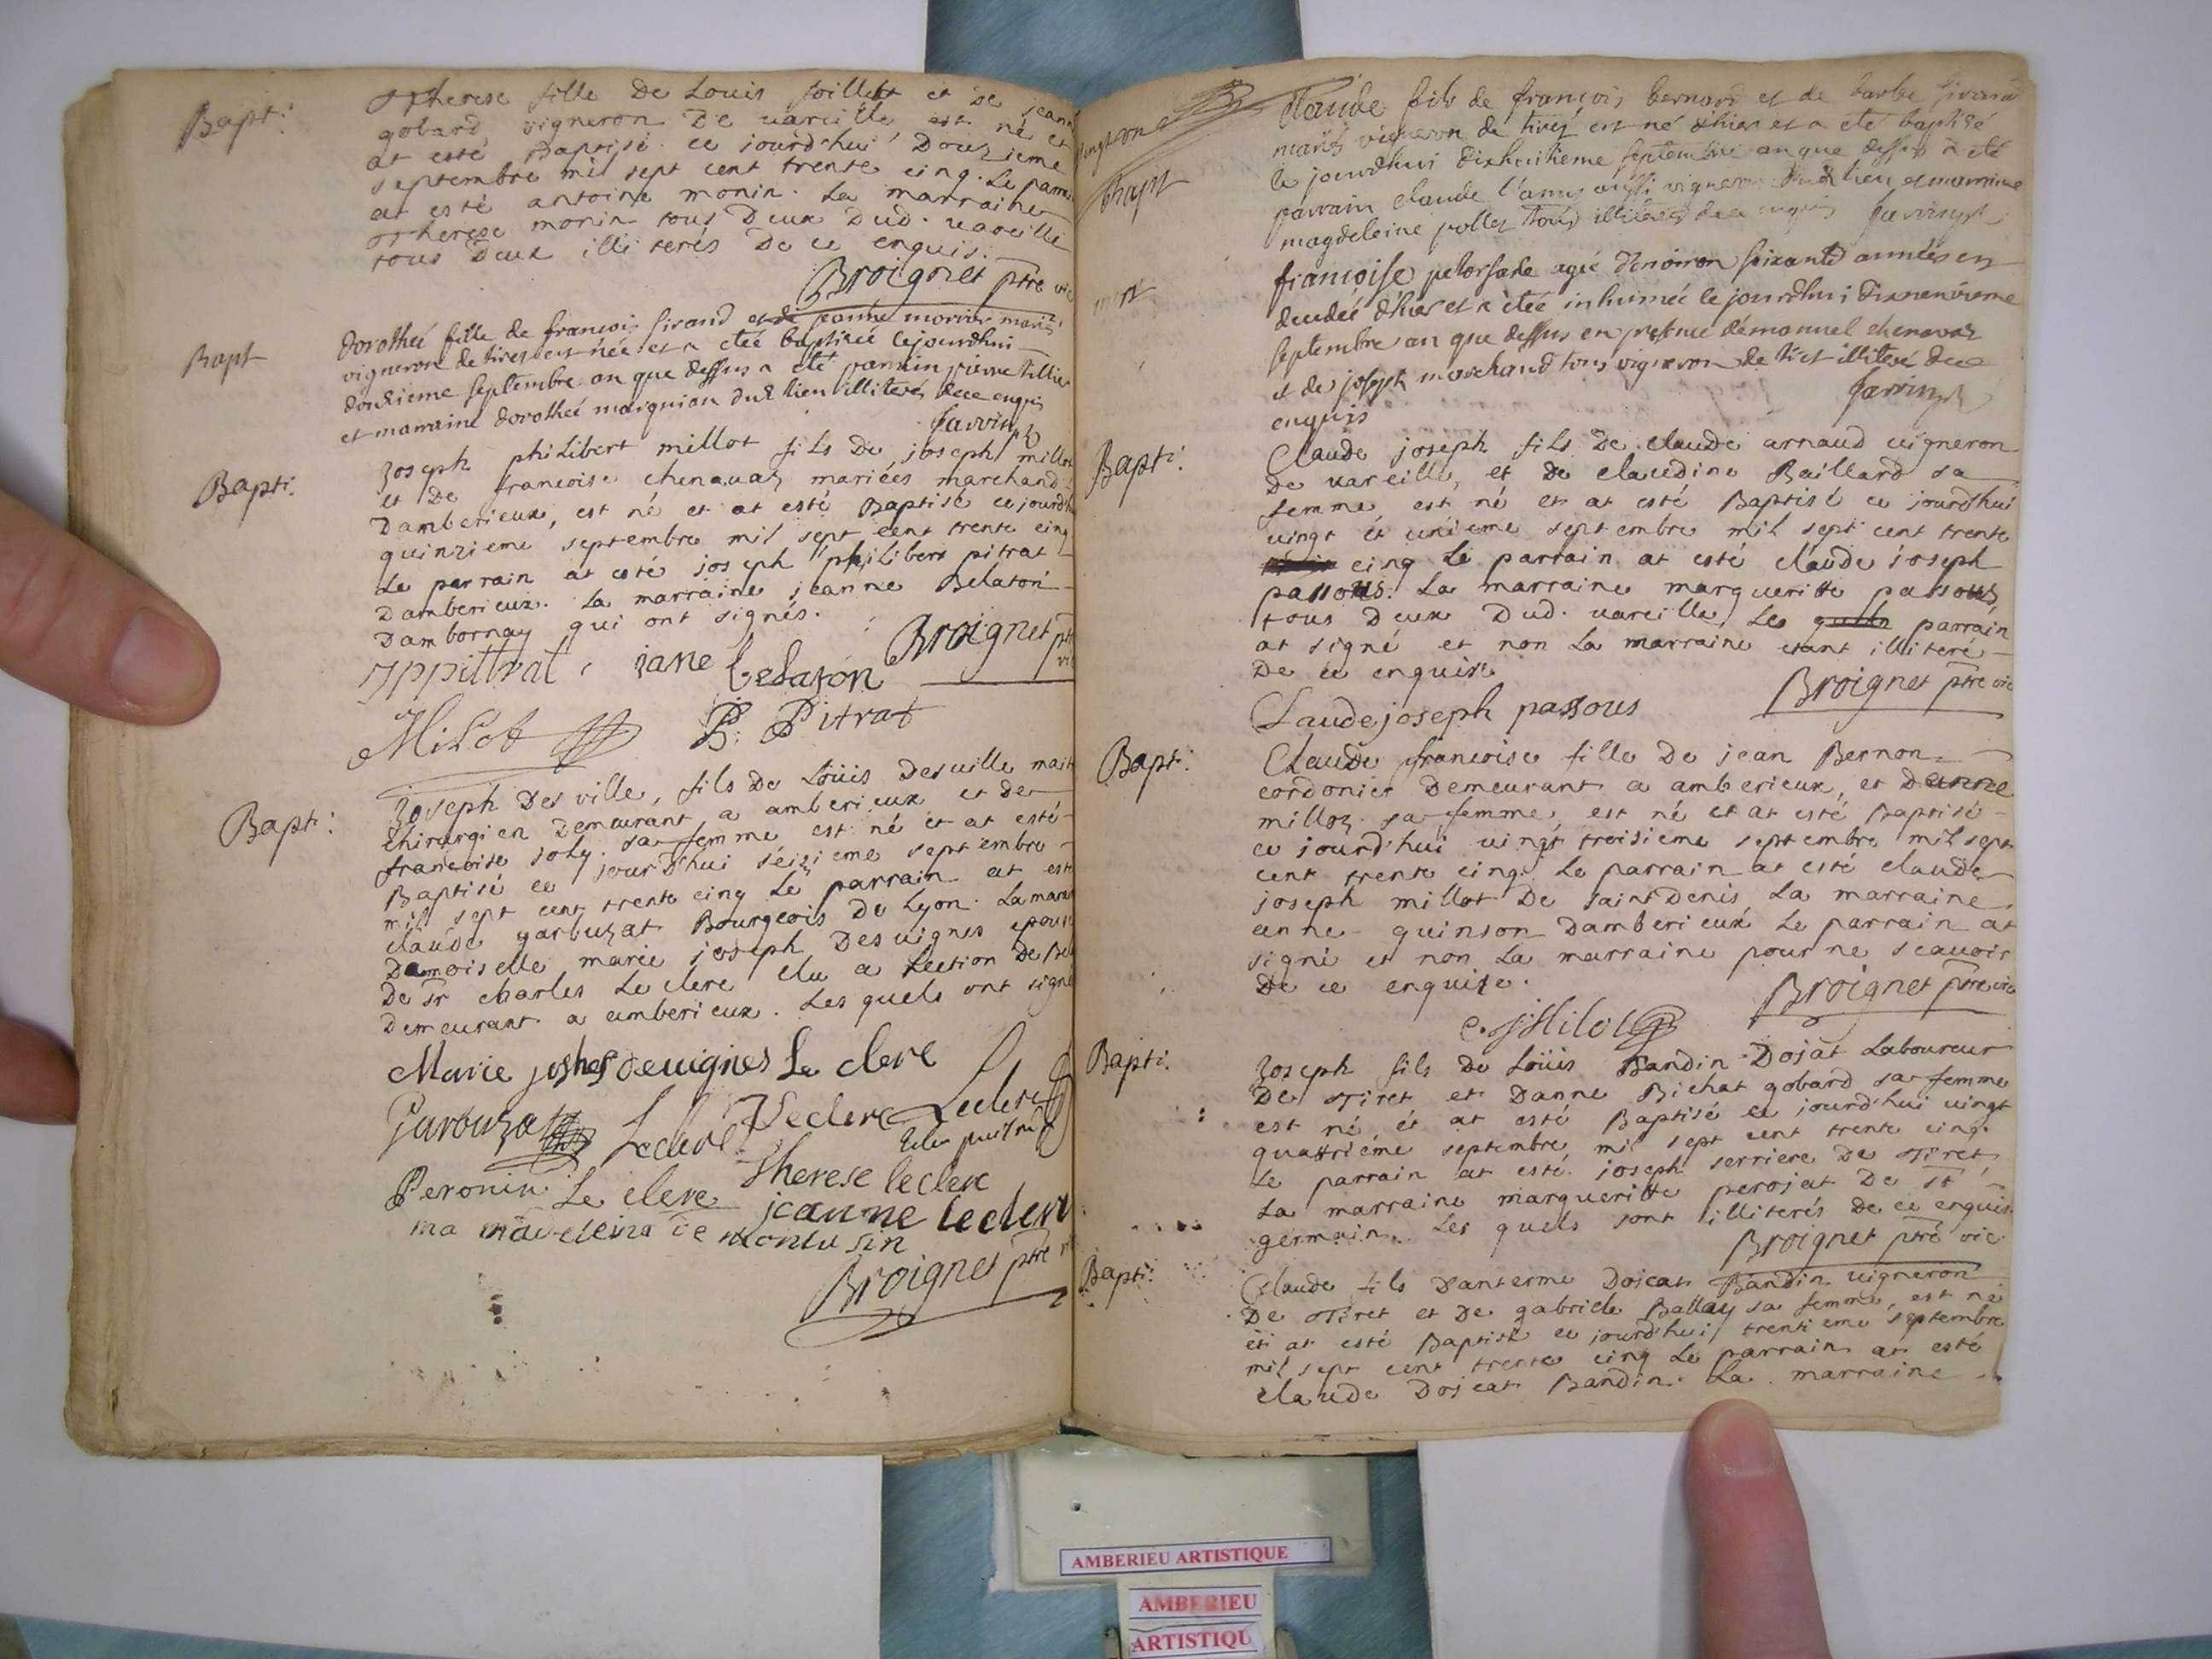 Bapt:
Therese fille De Louis soillet et De jeanne
gobard vigneron De vareille est né et
at esté Baptisé ce jourd'hui Douzieme
septembre mil sept cent trente cinq. Le parrain
at esté antoine monin. La marraine
Therese monin tous Deux Dud. vareille
tous Deux illiterés De ce enquis.
Broignet ptre vic
Bapt
dorotheé fille de francois sirand et de jeanne morrier mariés
vigneron de tiret est née et a eté baptizée cejourdhui
douzieme septembre an que dessus a eté parrain pierre tillier
et marraine dorotheé marquian dud lieu illiterés dece enquis
Bapt:
Joseph philibert millot fils De joseph millot
et De francoise chenavaz mariées marchand
Damberieux, est né et at esté Baptisé ce jourd'hui
quinzieme septembre mil sept cent trente cinq
Le parrain at esté joseph philibert pitrat
Damberieux. La marraine jeanne Belaton
Dambornay qui ont signés.
Broignet ptre vic
jppittrat jane belaton
Milot P. Pitrat
Bapt:
Joseph Des ville, fils De Loüis Desville maitre
chirurgien Demeurant a amberieux et De
francoise joly sa femme est né et at esté
Baptisé ce jourD'hui séizieme septembre
mil sept cent trente cinq Le parrain at esté
claude garbuzat Bourgeois De Lyon. La marraine
Damoiselle marie joseph Desvignes epouse
De sr charles Le clerc elu a Lection De
Demeurant a amberieux. Les quels ont signé
Marie joshef devignes Le clerc
Garbuzat Leclerc Leclerc Leclerc
Peronin Le clerc Therese leclerc
jeanne leclerc
ma madeleina de montusin
Broignet ptre
Bapt
Claude fils de françois bernard et de barbe sirand
mariés vigneron de tiret est né d'hier et a eté baptisé
le jourdhui dixhuitieme septembre an que dessus a eté
parrain claude l'amy aussi vigneron dud lieu et marraine
magdeleine pollet tous illiterés dece enquis
mort
françoise agée denviron soixante années est
decedeé d'hier et a eteé inhumeé le jourdhui dixneuvieme
septembre an que dessus en presence démanuel chenavaz
et de joseph marchand tous vigneron de tiret illiteré dece
enquis
Bapt:
Claude joseph fils De claude arnaud vigneron
De vareille, et de claudine Baillard sa
femme, est né et at esté Baptisé ce jourd'hui
vingt et unieme septembre mil sept cent trente
cinq Le parrain at esté claude joseph
passous. La marraine margueritte passous,
tous Deux Dud. vareille, Les quels parrain
at signé et non La marraine etant illiteré
De ce enquise
Broignet ptre vic
Claude joseph passous
Bapt:
Claude francoise fille De jean Bernon
cordonier Demeurant a amberieux, et Danne
milloz sa femme, est né et at esté Baptisé
ce jourd'hui vingt troisieme septembre mil sept
cent trente cinq. Le parrain at esté claude
joseph millot De saint Denis La marraine
anne quinson Damberieux Le parrain at
signé et non La marraine pour ne scavoir
De ce enquise.
Broignet ptre vic
c. j Milot
Bapt:
Joseph fils De Loüis Bandin Dojat Laboureur
De Tiret et Danne Bichat gobard sa femme
est né et at esté Baptisé ce jourd'hui vingt
quattriéme septembre mil sept cent trente cinq.
Le parrain at esté joseph serriere De Tiret
La marraine margueritte perojat De st
germain. Les quels sont illiterés De ce enquis
Broignet ptré vic
Bapt:
Claude fils Danterme Dojcat Bandin vigneron
De Tiret et De gabriele Ballay sa femme, est né
et at esté Baptisé ce jourd'hui trentieme septembre
mil sept cent trente cinq Le parrain at esté
claude Dojcat Bandin. La marraine
AMBERIEU ARTISTIQUE
AMBERIEU
ARTISTIQU